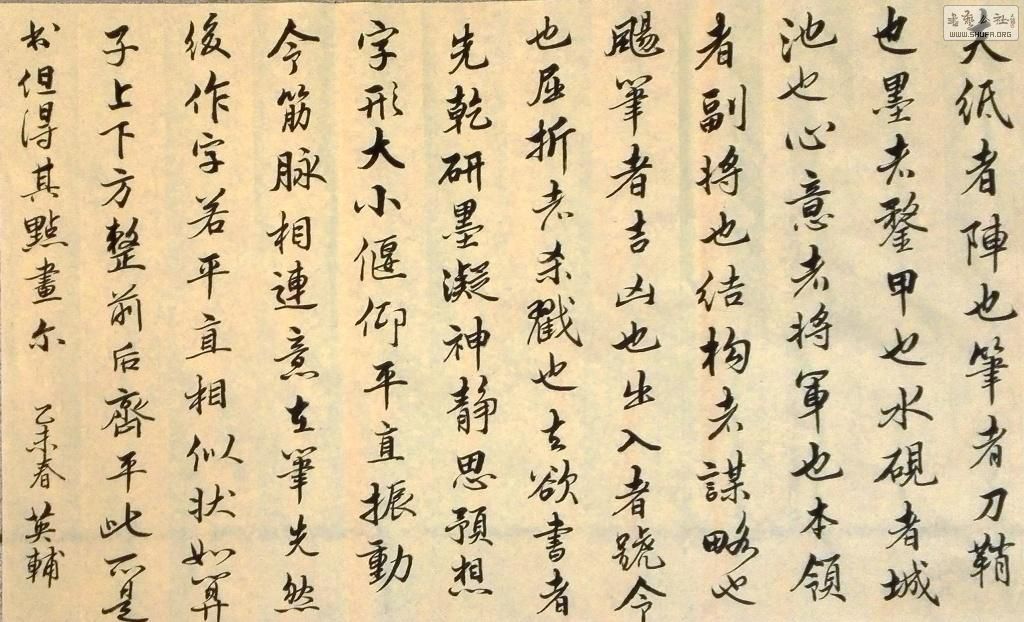 夫紙者陣也筆者刀鞘
也墨者鍪甲也水硯者城
池也心意者将軍也本領
者副将也结构者謀略也
颺筆者吉凶也出入者號令
也屈折者杀戳也夫欲書者
先乾研墨凝神静思預想
字形大小偃仰平直振動
令筋脉相連意在筆先然
後作字若平直相似状如算
子上下方整前后齊平此不是
书但得其點畫尔 乙未春 英輔
WWW.SHUFA.ORG